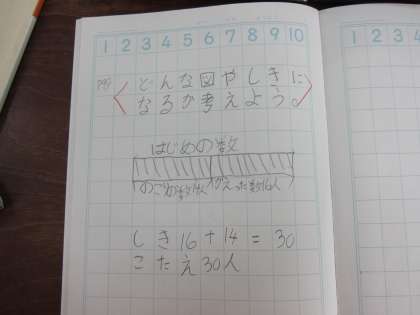 1 2 3 4 5 6 7 8 9 10
どんな図やしきに
なるか考えよう。
はじめの数
のこりの数14人 かえった数16人
しき16+14=30
こたえ30人
1 2 3 4